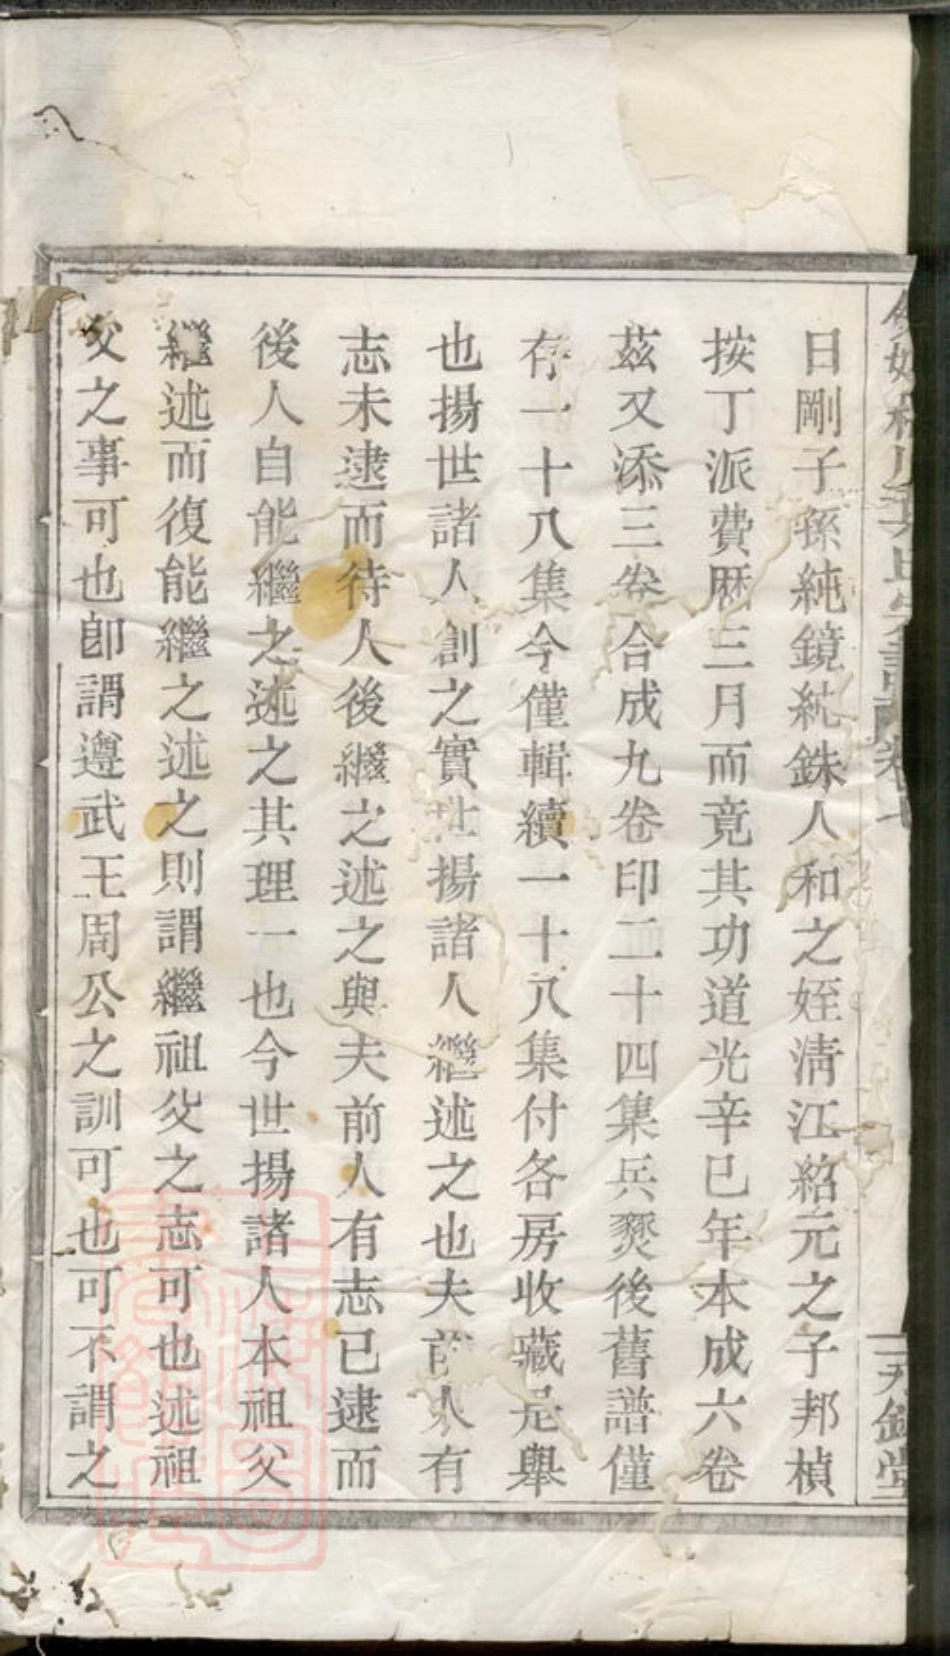 曰剛子孫純鏡純銖人和之姪淸江紹元之子邦楨
按丁派費歴三月而竟其功道光辛巳年本成六卷
茲又添三卷合成九卷印二十四集兵燹後舊譜僅
存一十八集今僅輯續一十八集付各房收藏是舉
也揚世諸人創之實世揚諸人繼述之也夫前人有
志未逮而待人後繼之述之與夫前人有志已逮而
後人自能繼之述之其理一也今世揚諸人本祖父
繼述而復能繼之述之則謂繼祖父之志可也述祖
父之事可也卽謂遵武王周公之訓可也可不謂之